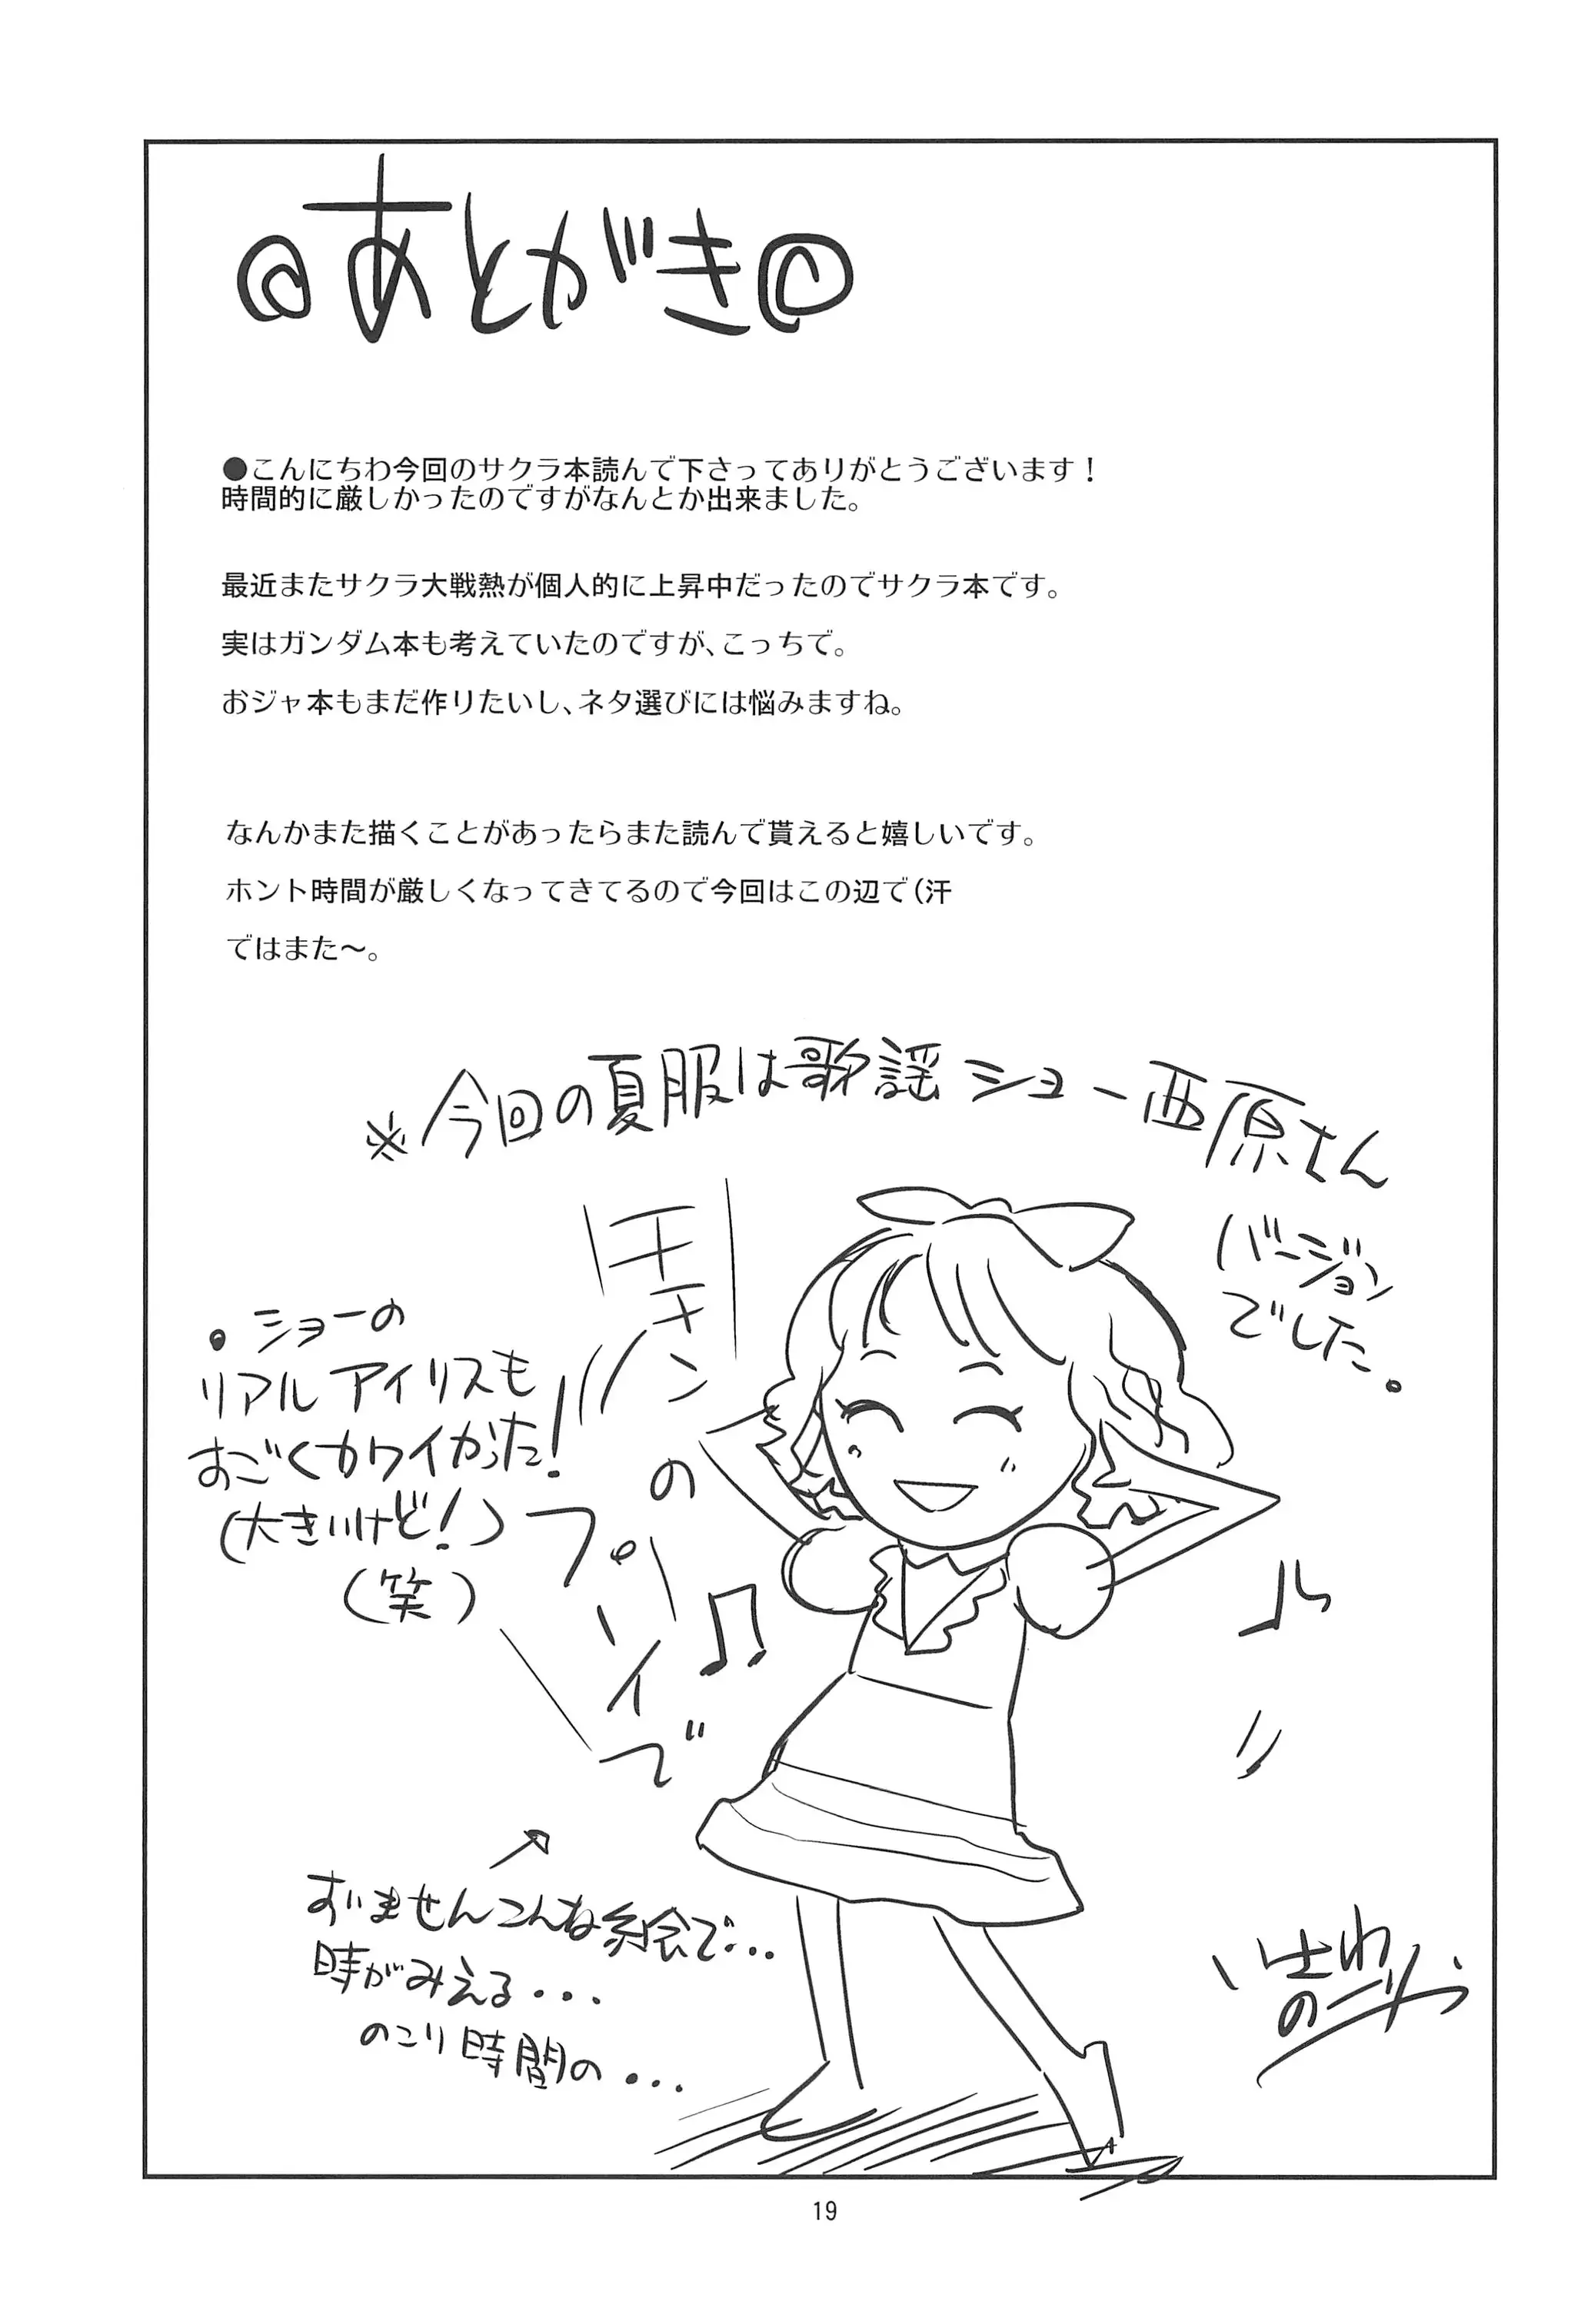 @あとがき@
●こんにちわ今回のサクラ本読んで下さってありがとうございます！
時間的に厳しかったのですがなんとか出来ました。
最近またサクラ大戦熱が個人的に上昇中だったのでサクラ本です。
実はガンダム本も考えていたのですが、こっちで。
おジャ本もまだ作りたいし、ネタ選びには悩みますね。
なんかまた描くことがあったらまた読んで貰えると嬉しいです。
ホント時間が厳しくなってきてるので今回はこの辺で（汗
ではまた～。
※今回の夏服は歌謡ショー西原さん
バージョン
でした。
チキン
の
プ
で
•ショーの
リアルアイリスも
すごくカワイかった！
（大きいけど！）
（笑）
すいませんこんな絵で…
時がみえる・・・
のこり時間の・・・
19